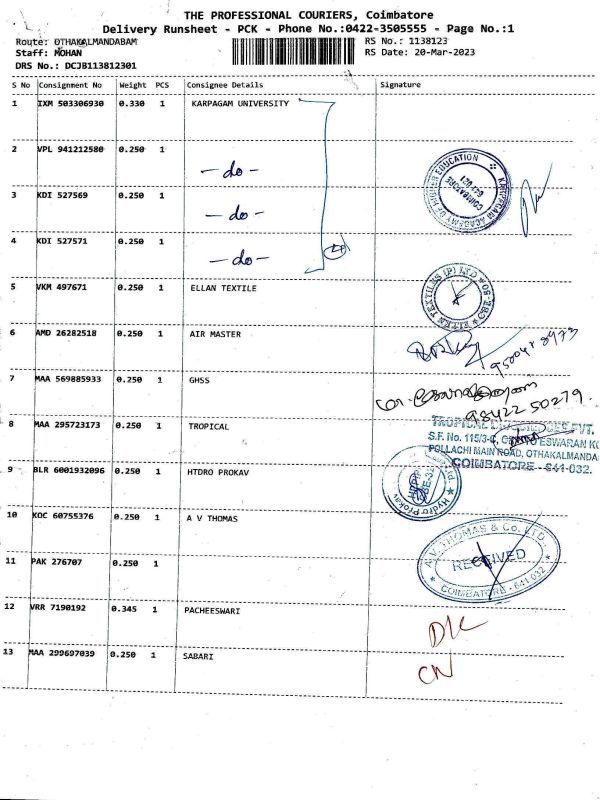 THE PROFESSIONAL COURIERS, Coimbatore
Delivery Runsheet - PCK - Phone No.:0422-3505555 - Page No.:1
Route: OTHAKALMANDABAM
RS No.: 1138123
Staff: MOHAN
RS Date: 20-Mar-2023
DRS No.: DCJB113812301
S No Consignment No Weight PCS Consignee Details Signature
1 IXM 503306930 0.330 1 KARPAGAM UNIVERSITY
2 VPL 941212580 0.250 1 - do -
3 KDI 527569 0.250 1 - do -
4 KDI 527571 0.250 1 - do - 4
KARPAGAM ACADEMY OF HIGHER EDUCATION
COIMBATORE
641 021
5 VKM 497671 0.250 1 ELLAN TEXTILE
TEXTILES (P) LTD
6 AMD 26282518 0.250 1 AIR MASTER
7 MAA 569885933 0.250 1 GHSS
98422 50279.
8 MAA 295723173 0.250 1 TROPICAL
TROPICAL PVT.
S.F. No. 115/3-
POLLACHI MAIN ROAD, OTHAKALMANDA
COIMBATORE - 641-032.
9 BLR 6001932096 0.250 1 HTDRO PROKAV
Hydro Prokav Ltd.
10 KOC 60755376 0.250 1 A V THOMAS
A.V. THOMAS & Co. LTD.
RECEIVED
COIMBATORE - 641 032
11 PAK 276707 0.250 1
12 VRR 7190192 0.345 1 PACHEESWARI
D/L
13 MAA 299697039 0.250 1 SABARI
CN